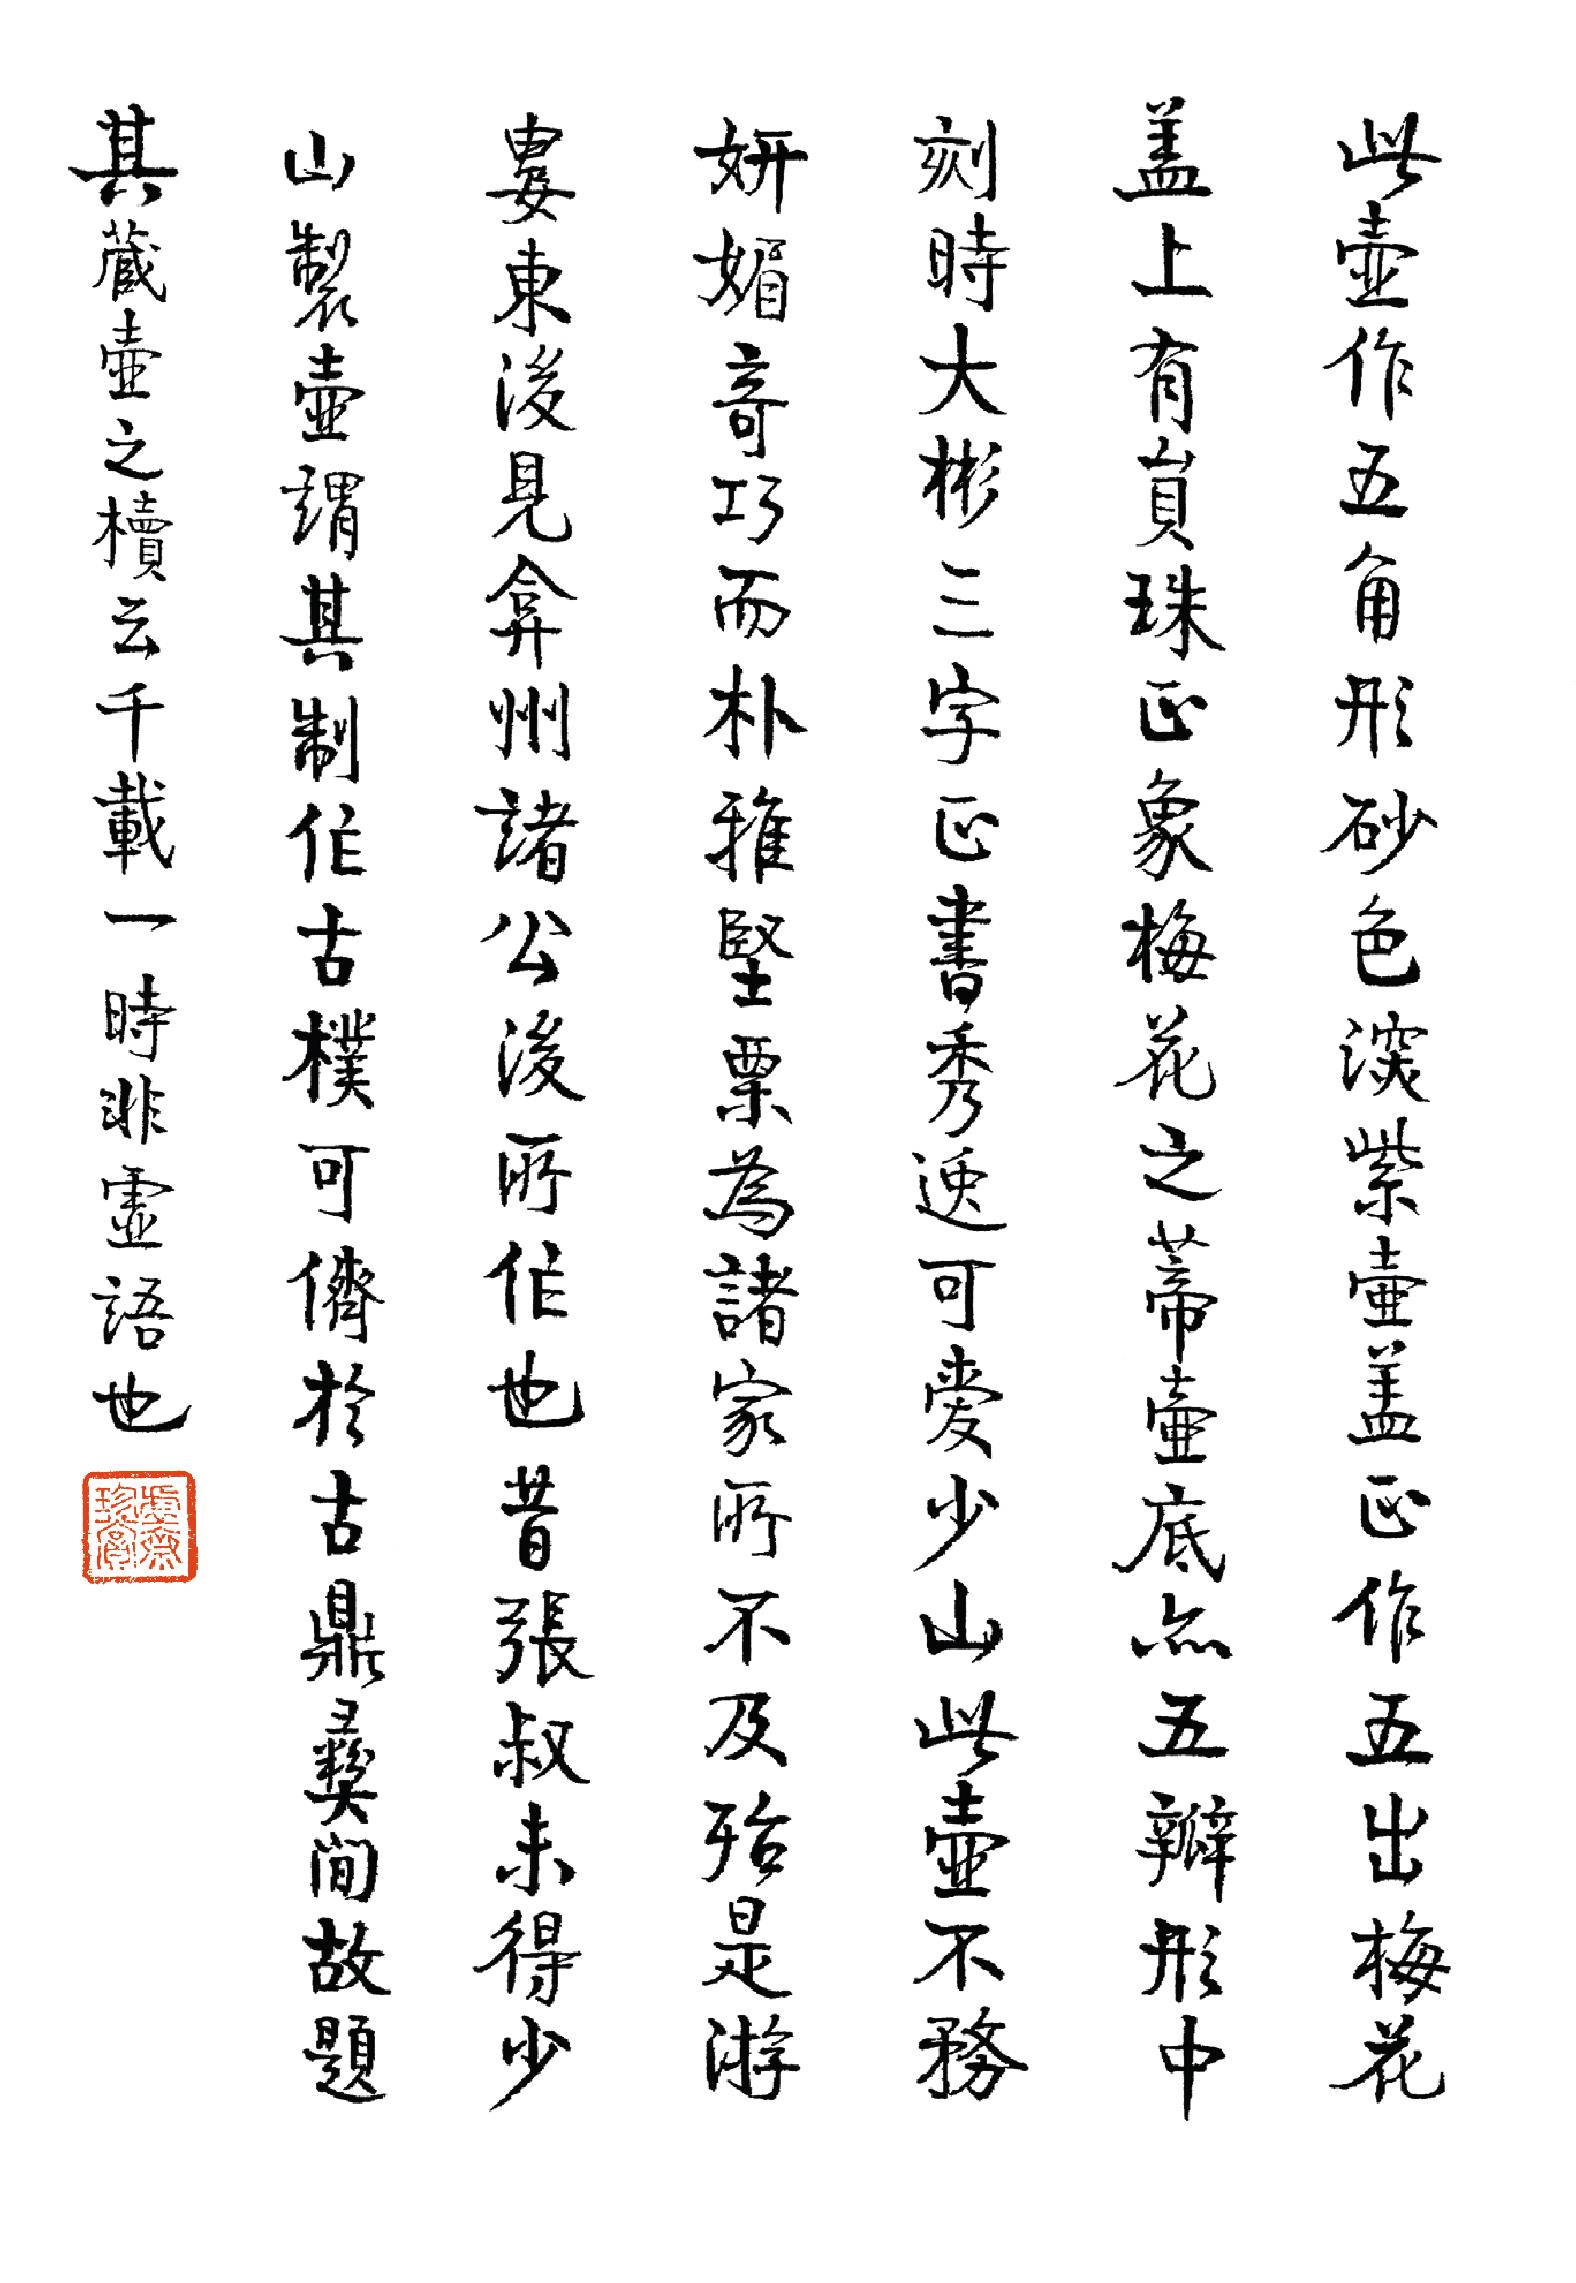 此壺作五角形砂色淡紫壺蓋正作五出梅花
蓋上有員珠正象梅花之蒂壺底亦五瓣形中
刻時大彬三字正書秀逸可愛少山此壺不務
妍媚奇巧而朴雅堅栗為諸家所不及殆是游
婁東後見弇州諸公後所作也昔張叔未得少
山製壺謂其制作古樸可儕於古鼎彝間故題
其藏壺之櫝云千載一時非虛語也